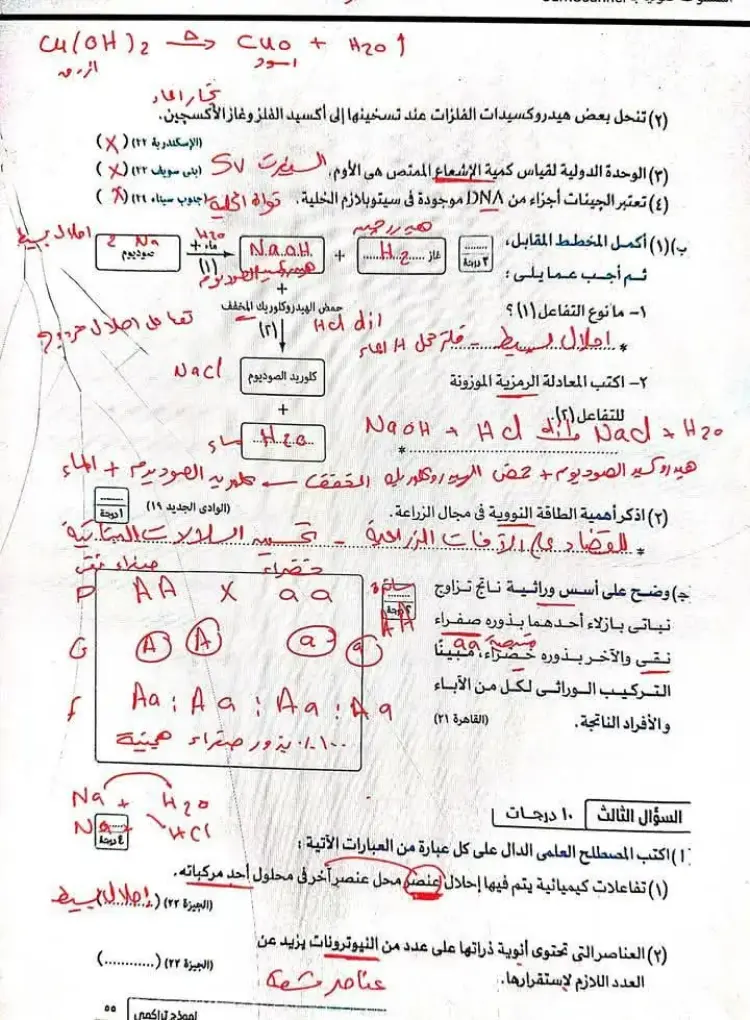 Cu(OH)2 →Δ CuO + H2O ↑
ازرق اسود
بخار الماء
(٢) تنحل بعض هيدروكسيدات الفلزات عند تسخينها إلى أكسيد الفلز وغاز الأكسجين.
(الإسكندرية ٢٢) (X)
(٣) الوحدة الدولية لقياس كمية الإشعاع الممتص هى الأوم. السيفرت Sv (بنى سويف ٢٣) (X)
(٤) تعتبر الجينات أجزاء من DNA موجودة فى سيتوبلازم الخلية. نواة الخلية (جنوب سيناء ٢٤) (X)
ب) (١) أكمل المخطط المقابل،
ثم أجب عما يلى :
٢ درجة
هيدروجين
غاز ...H2...
+
NaOH
هيدروكسيد الصوديوم
H2O
+ ماء
(١)
2 Na
صوديوم
احلال بسيط
١- ما نوع التفاعل (١)؟
* احلال بسيط - فلز محل H الماء
+
حمض الهيدروكلوريك المخفف
(٢)
HCl
تفاعل احلال مزدوج
كلوريد الصوديوم
NaCl
+
...H2O...
ماء
٢- اكتب المعادلة الرمزية الموزونة
للتفاعل (٢).
* NaOH + HCl → NaCl + H2O
هيدروكسيد الصوديوم + حمض الهيدروكلوريك المخفف ← كلوريد الصوديوم + الماء
(٢) اذكر أهمية الطاقة النووية فى مجال الزراعة. (الوادى الجديد ١٩)
١ درجة
* للقضاء على الآفات الزراعية - تحسين السلالات النباتية
ج) وضح على أسس وراثية ناتج تزاوج
نباتى بازلاء أحدهما بذوره صفراء
نقى والآخر بذوره خضراء، مبينًا
التركيب الوراثى لكل من الآباء
والأفراد الناتجة. (القاهرة ٢١)
AA
متنحية aa
خضراء صفراء نقى
P AA X aa
G A A a a
F Aa : Aa : Aa : Aa
١٠٠٪ بذور صفراء هجينة
السؤال الثالث ١٠ درجات
Na + H2O
HCl
٤ درجة
أ) اكتب المصطلح العلمى الدال على كل عبارة من العبارات الآتية :
(١) تفاعلات كيميائية يتم فيها إحلال عنصر محل عنصر آخر فى محلول أحد مركباته.
(الجيزة ٢٢) (إحلال بسيط)
(٢) العناصر التى تحتوى أنوية ذراتها على عدد من النيوترونات يزيد عن
العدد اللازم لاستقرارها. (الجيزة ٢٢) (............)
عناصر مشعة
نموذج تراكمى ٥٥